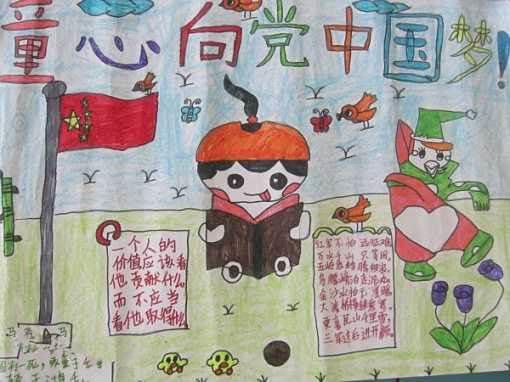 童心向党中国梦!
一个人的
价值应该看
他贡献什么
而不应当
看他取得什么
红军不怕远征难
万水千山只等闲
金沙水拍云
大渡桥横铁索寒
更喜岷山千里雪
三军过后进开颜